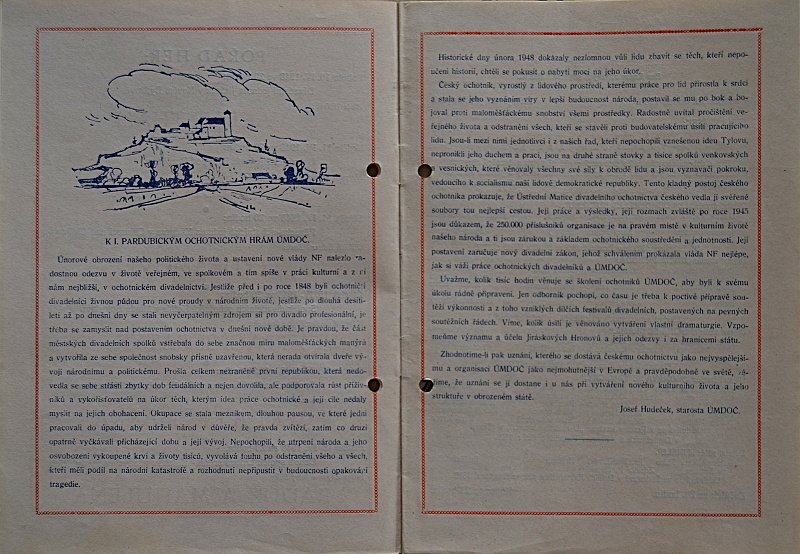 K I. PARDUBICKÝM OCHOTNICKÝM HRÁM ÚMDOČ.
Únorové obrození našeho politického života a ustavení nové vlády NF nalezlo
dostnou odezvu v životě veřejném, ve spolkovém a tím spíše v práci kulturní a z
nám nejbližší, v ochotnickém divadelnictví. Jestliže před i po roce 1848 byli ochotničtí
divadelníci živnou půdou pro nové proudy v národním životě, jestliže po dlouhá desíti-
letí až po dnešní dny se stali nevyčerpatelným zdrojem sil pro divadlo profesionální, je
třeba se zamyslit nad postavením ochotnictva v dnešní nové době. Je pravdou, že část
městských divadelních spolků vstřebala do sebe značnou míru maloměšťáckých manýrů
a vytvořila ze sebe společnost snobsky přísně uzavřenou, která nerada otvírala dveře vý-
voji národnímu a politickému. Prošla celkem nezraněně první republikou, která nedo-
vedla se sebe střásti zbytky dob feudálních a nejen dovolila, ale podporovala růst příživ-
níků a vykořisťovatelů na úkor těch, kterým idea práce ochotnické a její cíle nedaly
myslit na jejich obohacení. Okupace se stala mezníkem, dlouhou pausou, ve které jedni
pracovali do úpadu, aby udrželi národ v důvěře, že pravda zvítězí, zatím co druzí
opatrně vyčkávali přicházející dobu a její vývoj. Nepochopili, že utrpení národa a jeho
osvobození vykoupené krví a životy tisíců, vyvolává touhu po odstranění všeho a všech,
kteří měli podíl na národní katastrofě a rozhodnutí nepřipustit v budoucnosti opakování
tragedie.
Historické dny února 1948 dokázaly nezlomnou vůli lidu zbavit se těch, kteří nepo-
učeni historií, chtěli se pokusit o nabytí moci na jeho úkor.
Český ochotník, vyrostlý z lidového prostředí, kterému práce pro lid přirostla k srdci
a stala se jeho vyznáním víry v lepší budoucnost národa, postavil se mu po bok a bo-
joval proti maloměšťáckému snobství všemi prostředky. Radostně uvítal pročištění ve-
řejného života a odstranění všech, kteří se stavěli proti budovatelskému úsilí pracujícího
lidu. Jsou-li mezi nimi jednotlivci i z našich řad, kteří nepochopili vznešenou ideu Tylovu,
nepronikli jeho duchem a prací, jsou na druhé straně stovky a tisíce spolků venkovských
a vesnických, které věnovaly všechny své síly k obrodě lidu a jsou vyznavači pokroku,
vedoucího k socialismu naší lidově demokratické republiky. Tento kladný postoj českého
ochotníka prokazuje, že Ústřední Matice divadelního ochotnictva českého vedla jí svěřené
soubory tou nejlepší cestou. Její práce a výsledky, její rozmach zvláště po roce 1945
jsou důkazem, že 250.000 příslušníků organisace je na pravém místě v kulturním životě
našeho národa a ti jsou zárukou a základem ochotnického soustředění a jednotnosti. Její
postavení zaručuje nový divadelní zákon, jehož schválením prokázala vláda NF nejlépe,
jak si váží práce ochotnických divadelníků a ÚMDOČ.
Uvažme, kolik tisíc hodin věnuje se školení ochotníků ÚMDOČ, aby byli k svému
úkolu řádně připraveni. Jen odborník pochopí, co času je třeba k poctivé přípravě sou-
těží výkonnosti a z toho vzniklých dílčích festivalů divadelních, postavených na pevných
soutěžních řádech. Víme, kolik úsilí je věnováno vytváření vlastní dramaturgie. Vzpo-
meňme významu a účelu Jiráskových Hronovů a jejich odezvy i za hranicemi státu.
Zhodnotíme-li pak uznání, kterého se dostává českému ochotnictvu jako nejvyspělejší-
mu a organisaci ÚMDOČ jako nejmohutnější v Evropě a pravděpodobně ve světě,
time, že uznání se jí dostane i u nás při vytváření nového kulturního života a jeho
struktuře v obrozeném státě.
Josef Hudeček, starosta ÚMDOČ.